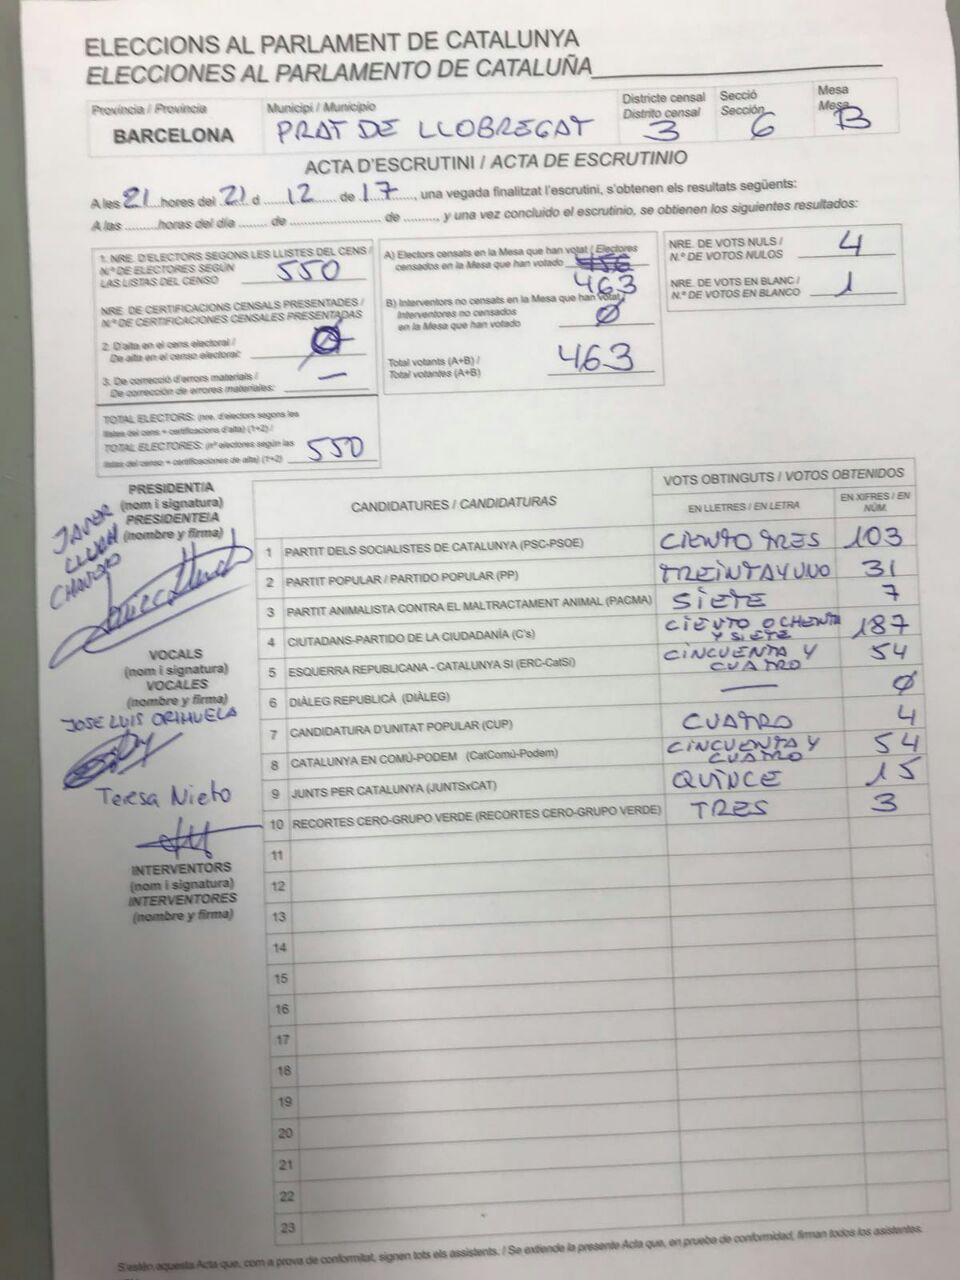 ELECCIONS AL PARLAMENT DE CATALUNYA
ELECCIONES AL PARLAMENTO DE CATALUÑA
Província / Provincia
BARCELONA
Municipi / Municipio
PRAT DE LLOBREGAT
Districte censal
Distrito censal
3
Secció
Sección
6
Mesa
Mesa
B
ACTA D'ESCRUTINI / ACTA DE ESCRUTINIO
A les 21 hores del 21 d 12 de 17, una vegada finalitzat l'escrutini, s'obtenen els resultats següents:
A las ........horas del día ...... de ...................... de ........, y una vez concluido el escrutinio, se obtienen los siguientes resultados:
1. NRE. D'ELECTORS SEGONS LES LLISTES DEL CENS /
N.º DE ELECTORES SEGÚN
LAS LISTAS DEL CENSO 550
NRE. DE CERTIFICACIONS CENSALS PRESENTADES /
N.º DE CERTIFICACIONES CENSALES PRESENTADAS
2. D'alta en el cens electoral /
De alta en el censo electoral: 0
3. De correcció d'errors materials /
De corrección de errores materiales: —
TOTAL ELECTORS: (nre. d'electors segons les
llistes del cens + certificacions d'alta) (1+2) /
TOTAL ELECTORES: (nº electores según las
listas del censo + certificaciones de alta) (1+2) 550
A) Electors censats en la Mesa que han votat / Electores
censados en la Mesa que han votado
463
B) Interventors no censats en la Mesa que han votat /
Interventores no censados
en la Mesa que han votado Ø
Total votants (A+B) /
Total votantes (A+B) 463
NRE. DE VOTS NULS /
N.º DE VOTOS NULOS 4
NRE. DE VOTS EN BLANC /
N.º DE VOTOS EN BLANCO 1
PRESIDENTIA
(nom i signatura)
PRESIDENTEIA
(nombre y firma)
JAVIER
VOCALS
(nom i signatura)
VOCALES
(nombre y firma)
JOSE LUIS ORIHUELA
Teresa Nieto
INTERVENTORS
(nom i signatura)
INTERVENTORES
(nombre y firma)
CANDIDATURES / CANDIDATURAS
VOTS OBTINGUTS / VOTOS OBTENIDOS
EN LLETRES / EN LETRA
EN XIFRES / EN NÚM.
1 PARTIT DELS SOCIALISTES DE CATALUNYA (PSC-PSOE) CIENTO TRES 103
2 PARTIT POPULAR / PARTIDO POPULAR (PP) TREINTA Y UNO 31
3 PARTIT ANIMALISTA CONTRA EL MALTRACTAMENT ANIMAL (PACMA) SIETE 7
4 CIUTADANS-PARTIDO DE LA CIUDADANÍA (C's) CIENTO OCHENTA Y SIETE 187
5 ESQUERRA REPUBLICANA - CATALUNYA SI (ERC-CatSí) CINCUENTA Y CUATRO 54
6 DIÀLEG REPUBLICÀ (DIÀLEG) — Ø
7 CANDIDATURA D'UNITAT POPULAR (CUP) CUATRO 4
8 CATALUNYA EN COMÚ-PODEM (CatComú-Podem) CINCUENTA Y CUATRO 54
9 JUNTS PER CATALUNYA (JUNTSxCAT) QUINCE 15
10 RECORTES CERO-GRUPO VERDE (RECORTES CERO-GRUPO VERDE) TRES 3
11
12
13
14
15
16
17
18
19
20
21
22
23
S'estén aquesta Acta que, com a prova de conformitat, signen tots els assistents. / Se extiende la presente Acta que, en prueba de conformidad, firman todos los asistentes.